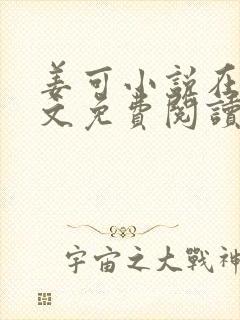 姜可小說在
文免費閱讀
宇宙之大戰神